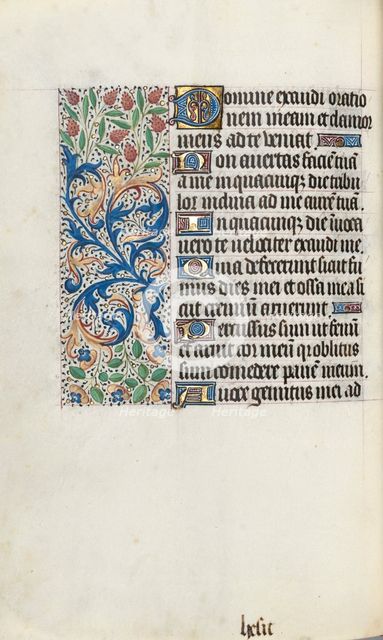 Domine exaudi oratio
nem meam et clamor
meus ad te veniat
Non avertas faciē tuā
a me in quacunq; die tribu
lor inclina ad me aurem tuā.
In quacunq; die īvoca
vero te velociter exaudi me.
Quia defecerunt sicut fu
mus dies mei et ossa mea si
cut cremiū aruerunt
Percussus sum ut fenū
et aruit cor meū q̄ oblitus
sum comedere panē meum.
A voce gemitus mei ad
hesit
heritage
Heritage
Heritage